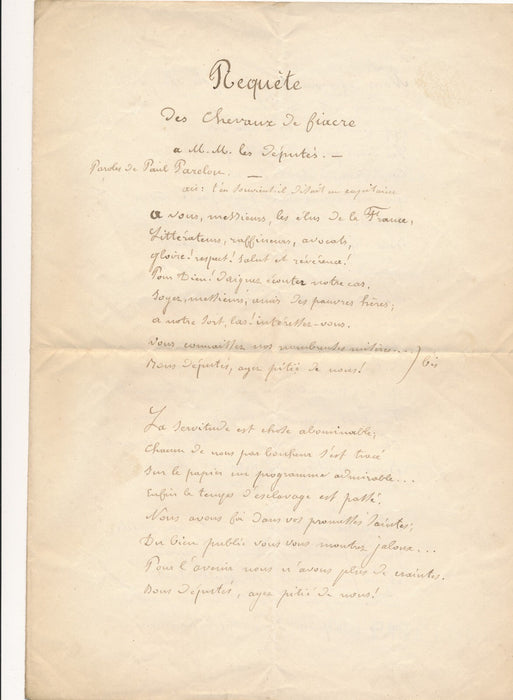 Requête
des chevaux de fiacre
a M.M. les députés. —
Paroles de Paul —
air: t'en souviens-il disait un capitaine
a vous, messieurs, les élus de la France,
Littérateurs, raffineurs, avocats,
gloire! respect! salut et révérence!
Pour Dieu! daignez écouter notre cas,
Soyez, messieurs, amis des pauvres hères;
a notre sort, las! intéressez-vous.
vous connaissez nos nombreuses misères....
Bons députés, ayez pitié de nous! ) bis
La servitude est chose abominable;
Chacun de nous par bonheur s'est tracé
Sur le papier un programme admirable...
Enfin le temps d'esclavage est passé.
Nous avons foi dans vos promesses saintes;
Du bien public vous vous montrez jaloux...
Pour l'avenir nous n'avons plus de craintes.
Bons députés, ayez pitié de nous!